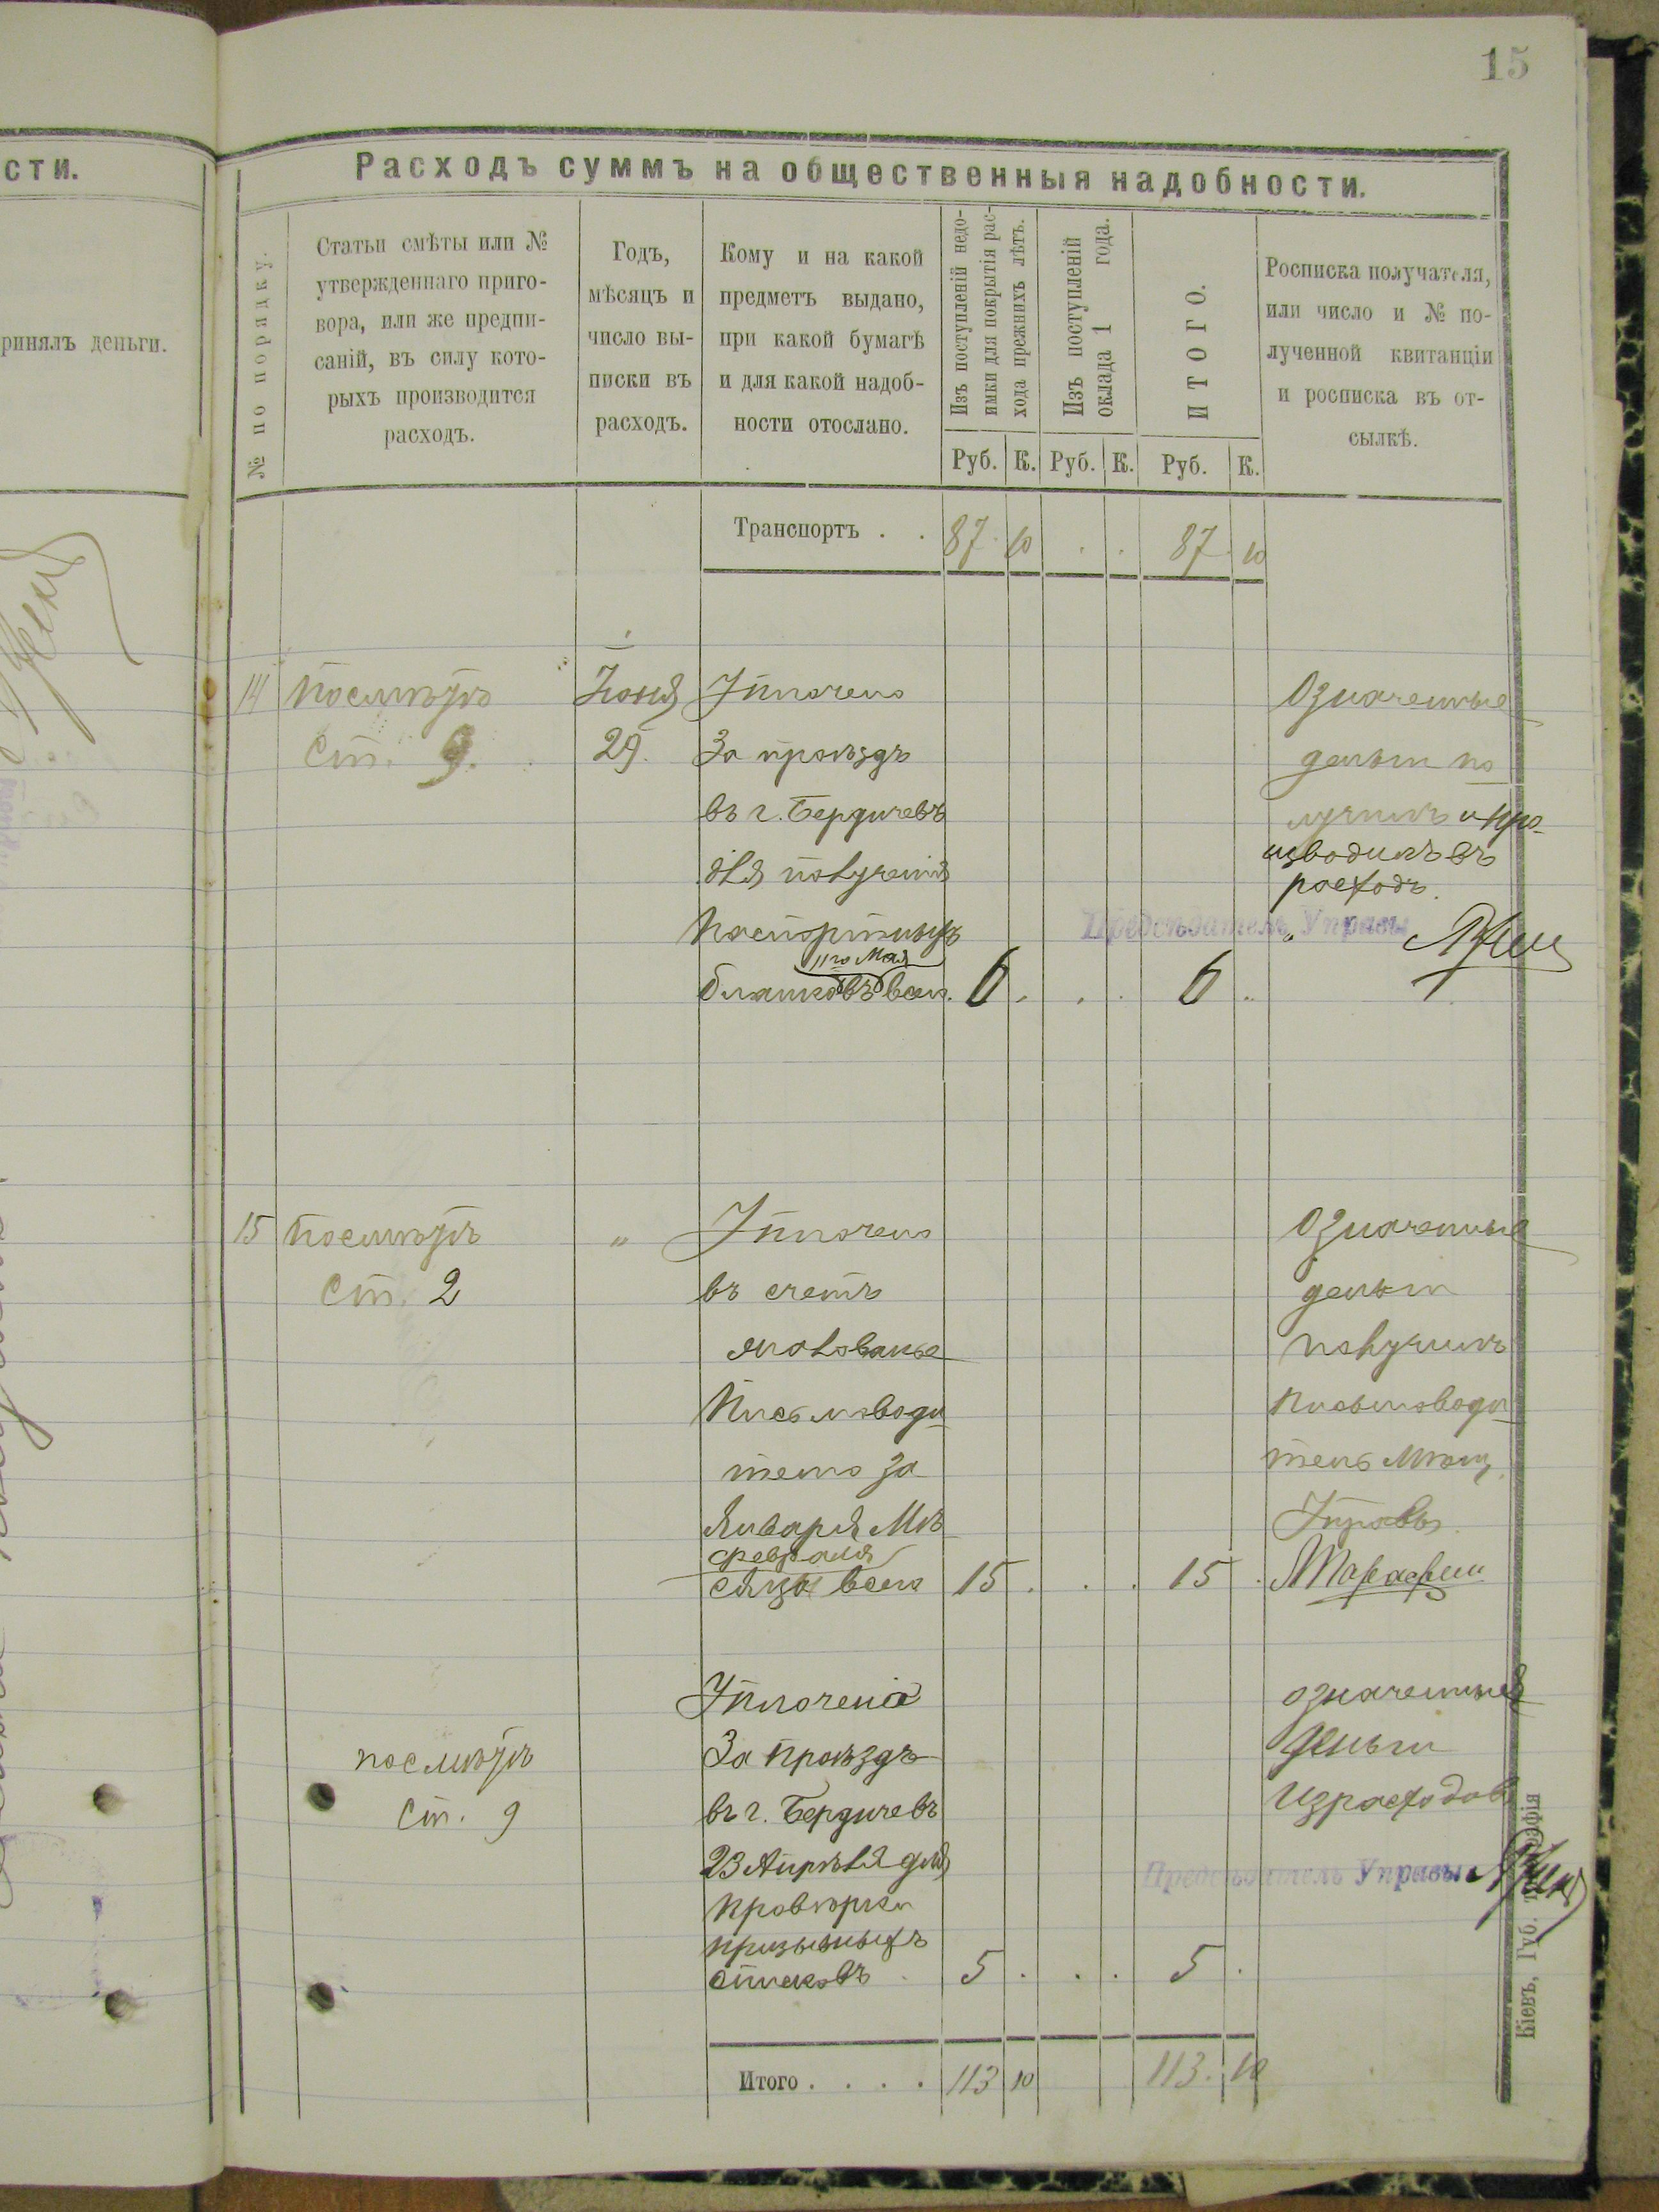 15
сти.
ринялъ деньги.
Расходъ суммъ на общественныя надобности.
№ по порядку.
Статьи смѣты или №
утвержденнаго приго-
вора, или же предпи-
саній, въ силу кото-
рыхъ производится
расходъ.
Годъ,
мѣсяцъ и
число вы-
писки въ
расходъ.
Кому и на какой
предметъ выдано,
при какой бумагѣ
и для какой надоб-
ности отослано.
Изъ поступленій недо-
имки для покрытія рас-
хода прежнихъ лѣтъ.
Изъ поступленій
оклада 1 года.
ИТОГО.
Руб. К. Руб. К. Руб. К.
Росписка получателя,
или число и № по-
лученной квитанціи
и росписка въ от-
сылкѣ.
Транспортъ . . 87 10 . . 87 10
14 посмѣтѣ
ст. 9.
Іюня
29.
Уплочено
За проѣздъ
въ г. Бердичевъ
для полученія
паспортныхъ
11го Мая
бланковъ всего. 6 . . . 6 ..
Означенные
деньги по
лучилъ и про-
изводилъ въ
расходъ.
Предсѣдатель Управы
15 посмѣтѣ
ст. 2
"
Уплочено
въ счетъ
жалованье
Письмоводи
телю за
Января Мѣ
февраля
сяцы всего 15 . . . 15 .
Означенные
деньги
получилъ
письмоводи
тель Мѣщ.
Управы
посмѣтѣ
ст. 9
Уплочено
За проѣздъ
въ г. Бердичевъ
23 Апрѣля для
провѣрки
призывныхъ
списковъ 5 . . . 5 .
означенные
деньги
израсходов
Предсѣдатель Управы
Итого . . . . 113 10 113. 10
Кіевъ, Губ. типографія